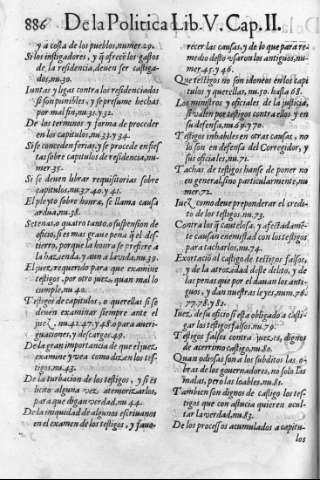 886 De la Politica Lib. V. Cap. II.
y a costa de los pueblos, numer. 29.
Si los instigadores, y q̃ ofrecẽ los gastos
de la residencia, deuen ser castiga-
dos, nu. 30.
Iuntas y ligas contra los residenciados
si son punibles, y se presume hechas
por mal fin, nu. 31. y 32.
De los terminos y forma de proceder
en los capitulos, nu. 33. y 34.
Si se conceden ferias, y se procede en fies
tas sobre capitulos de residencia, nu-
mer. 35.
Si se deuen librar requisitorias sobre
capitulos, nu. 37. 40. y 41.
El pleyto sobre honra, se llama causa
ardua, nu. 38.
Setenas, o quatro tanto, o suspension de
oficio, si es mas graue pena q̃ el des-
tierro, porque la honra se prefiere a
la hazienda, y aun a la vida, nu. 39.
El juez requerido para que examine
testigos, por otro juez, quan mal lo
cumple, nu. 40.
Testigos de capitulos, o querellas si se
deuen examinar siempre ante el
juez, nu. 41. 47. y 48. o para aueri-
guaciones, y descargos, 49.
De la gran importancia de que el juez
examine y vea como dizen los tes-
tigos, nu. 43.
De la turbacion de los testigos, y si es
licito alguna vez atemorizarlos,
para que digan verdad, nu. 44.
De la iniquidad de algunos escriuanos
en el examen de los testigos, y fauo-
recer las causas, y de lo que para re-
medio desto vsaron los antiguos, nu-
mer. 45. y 46.
Que testigos no son idoneos en los capi
tulos y querellas, nu. 50. hasta 68.
Los ministros y oficiales de la justicia,
si valen por testigos contra ellos y en
su defensa, nu. 69. y 70.
Testigos inhabiles en otras causas, no
lo son en defensa del Corregidor, y
sus oficiales, nu. 71.
Tachas de testigos hanse de poner no
en general, sino particularmente, nu
mer. 72.
Iuez como deue preponderar el credi-
to de los testigos, nu. 73.
Contra los q̃ cautelosa, y afectadamẽ-
te causan enemistad con los testigos
para tacharlos, nu. 74.
Exortacion al castigo de testigos falsos,
y de la atrozidad deste delito, y de
las penas que por el dauan los anti-
guos, y dan nuestras leyes, num. 76.
77. 78. y 81.
Iuez, de su oficio si esta obligado a casti-
gar los testigos falsos, nu. 79.
Testigos falsos contra juezes, dignos
de acerrimo castigo, nu. 80.
Quan odiosas son a los subditos las o-
bras de los gouernadores, no solo las
malas, pero las loables, nu. 81.
Tambien son dignos de castigo los tes-
tigos que con astucia quieren ocul-
tar la verdad, nu. 83.
De los processos acumulados a capitu-
los